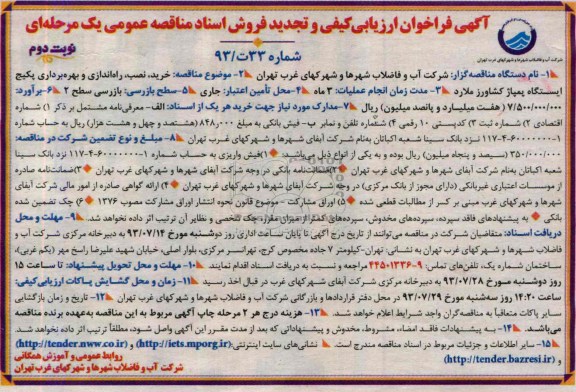 آگهی فراخوان ارزیابی‌کیفی و تجدید فروش اسناد مناقصه عمومی یک مرحله‌ای
شماره ۳۳ت/۹۳
نوبت دوم
شرکت آب و فاضلاب شهرها و شهرکهای غرب تهران
۱- نام دستگاه مناقصه‌گزار: شرکت آب و فاضلاب شهرها و شهرکهای غرب تهران ۲- موضوع مناقصه: خرید، نصب، راه‌اندازی و بهره‌برداری پکیج
ایستگاه پمپاژ کشاورز ملارد ۳- مدت زمان انجام عملیات: ۳ ماه ۴- محل تأمین اعتبار: جاری ۵- سطح بازرسی: بازرسی سطح ۲ ۶- برآورد:
۷/۵۰۰/۰۰۰/۰۰۰ (هفت میلیارد و پانصد میلیون) ریال ۷- مدارک مورد نیاز جهت خرید هر یک از اسناد: الف- معرفی‌نامه مشتمل بر ذکر ۱) شماره
اقتصادی ۲) شماره ثبت ۳) کدپستی ۱۰ رقمی ۴) شماره تلفن و نمابر ب- فیش بانکی به مبلغ ۸۴۸/۰۰۰ (هشتصد و چهل و هشت هزار) ریال به حساب شماره
۱۱۷-۴-۶۰۰۰۰۰۰۰-۱ نزد بانک سینا شعبه اکباتان به‌نام شرکت آبفای شهرها و شهرکهای غرب تهران ۸- مبلغ و نوع تضمین شرکت در مناقصه:
۳۵۰/۰۰۰/۰۰۰ (سیصد و پنجاه میلیون) ریال بوده و به یکی از انواع ذیل می‌باشد: ۱) فیش واریزی به حساب شماره ۱-۶۰۰۰۰۰۰۰-۴-۱۱۷ نزد بانک سینا
شعبه اکباتان به‌نام شرکت آبفای شهرها و شهرکهای غرب تهران ۲) ضمانت‌نامه بانکی در وجه شرکت آبفای شهرها و شهرکهای غرب تهران ۳) ضمانت‌نامه صادره
از موسسات اعتباری غیربانکی (دارای مجوز از بانک مرکزی) در وجه شرکت آبفای شهرها و شهرکهای غرب تهران ۴) ارائه گواهی صادره از امور مالی شرکت آبفای
شهرها و شهرکهای غرب تهران مبنی بر کسر از مطالبات قطعی شده ۵) اوراق مشارکت - موضوع قانون نحوه انتشار اوراق مشارکت مصوب ۱۳۷۶ ۶) چک تضمین شده
بانکی به پیشنهادهای فاقد سپرده، سپرده‌های مخدوش، سپرده‌های کمتر از میزان مقرر، چک شخصی و نظایر آن ترتیب اثر داده نخواهد شد. ۹- مهلت و محل
دریافت اسناد: متقاضیان شرکت در مناقصه می‌توانند از تاریخ درج آگهی تا پایان ساعت اداری روز دوشنبه مورخ ۹۳/۰۷/۱۴ به دبیرخانه مرکزی شرکت آب و
فاضلاب شهرها و شهرکهای غرب تهران به نشانی: تهران-کیلومتر ۷ جاده مخصوص کرج، تهرانسر مرکزی، بلوار اصلی، خیابان شهید علیرضا راسخ مهر (یکم غربی)،
ساختمان شماره یک، تلفن‌های تماس: ۹-۴۴۵۰۱۳۳۶ مراجعه و نسبت به دریافت اسناد اقدام نمایند ۱۰- مهلت و محل تحویل پیشنهاد: تا ساعت ۱۵
روز دوشنبه مورخ ۹۳/۰۷/۲۸ به دبیرخانه مرکزی شرکت آبفای شهرها و شهرکهای غرب تهران در قبال اخذ رسید ۱۱- زمان و محل گشایش پاکات ارزیابی‌کیفی:
ساعت ۱۴:۲۰ روز سه‌شنبه مورخ ۹۳/۰۷/۲۹ در محل دفتر قراردادها و بازرگانی شرکت آب و فاضلاب شهرها و شهرکهای غرب تهران ۱۲- تاریخ و زمان بازگشایی
سایر پاکات متعاقباً به مناقصه‌گران واجد شرایط اعلام خواهد شد. ۱۳- هزینه درج هر ۲ مرحله چاپ آگهی مربوط به این مناقصه به‌عهده برنده مناقصه
می‌باشد. ۱۴- به پیشنهادات فاقد امضاء، مشروط، مخدوش و پیشنهاداتی که بعد از مدت مقرر این آگهی واصل شود، مطلقاً ترتیب اثر داده نخواهد شد.
۱۵- سایر اطلاعات و جزئیات مربوط در اسناد مناقصه مندرج است. نشانی‌های سایت اینترنتی: (http://iets.mporg.ir) و (http://tender.nww.co.ir)
و (http://tender.bazresi.ir)
روابط عمومی و آموزش همگانی
شرکت آب و فاضلاب شهرها و شهرکهای غرب تهران